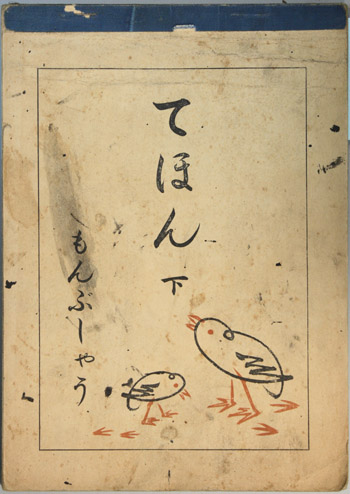 てほん 下
もんぶしやう